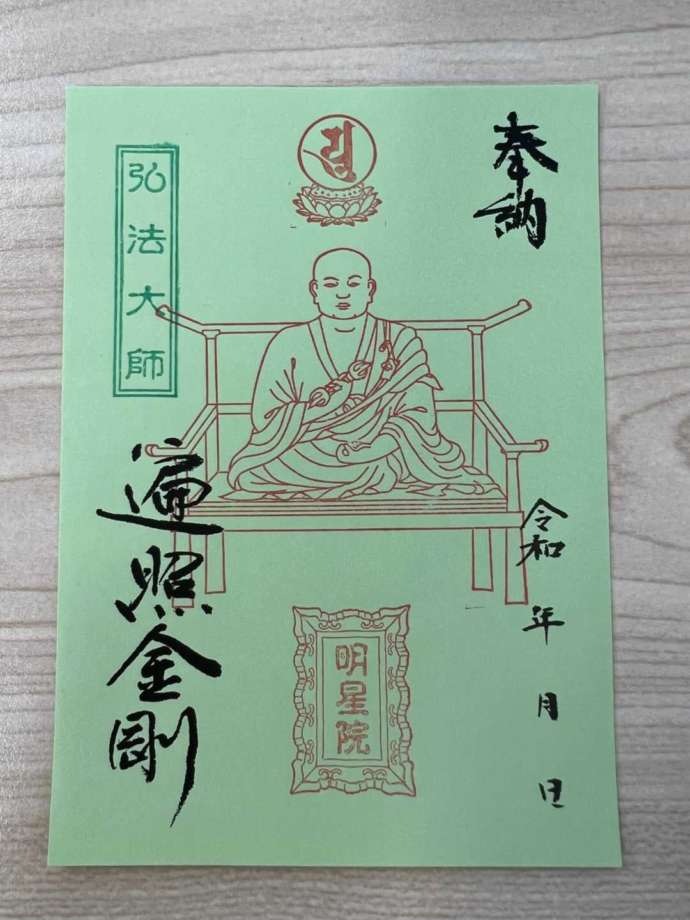 奉納
弘法大師
遍照金剛
令和 年 月 日
明星院